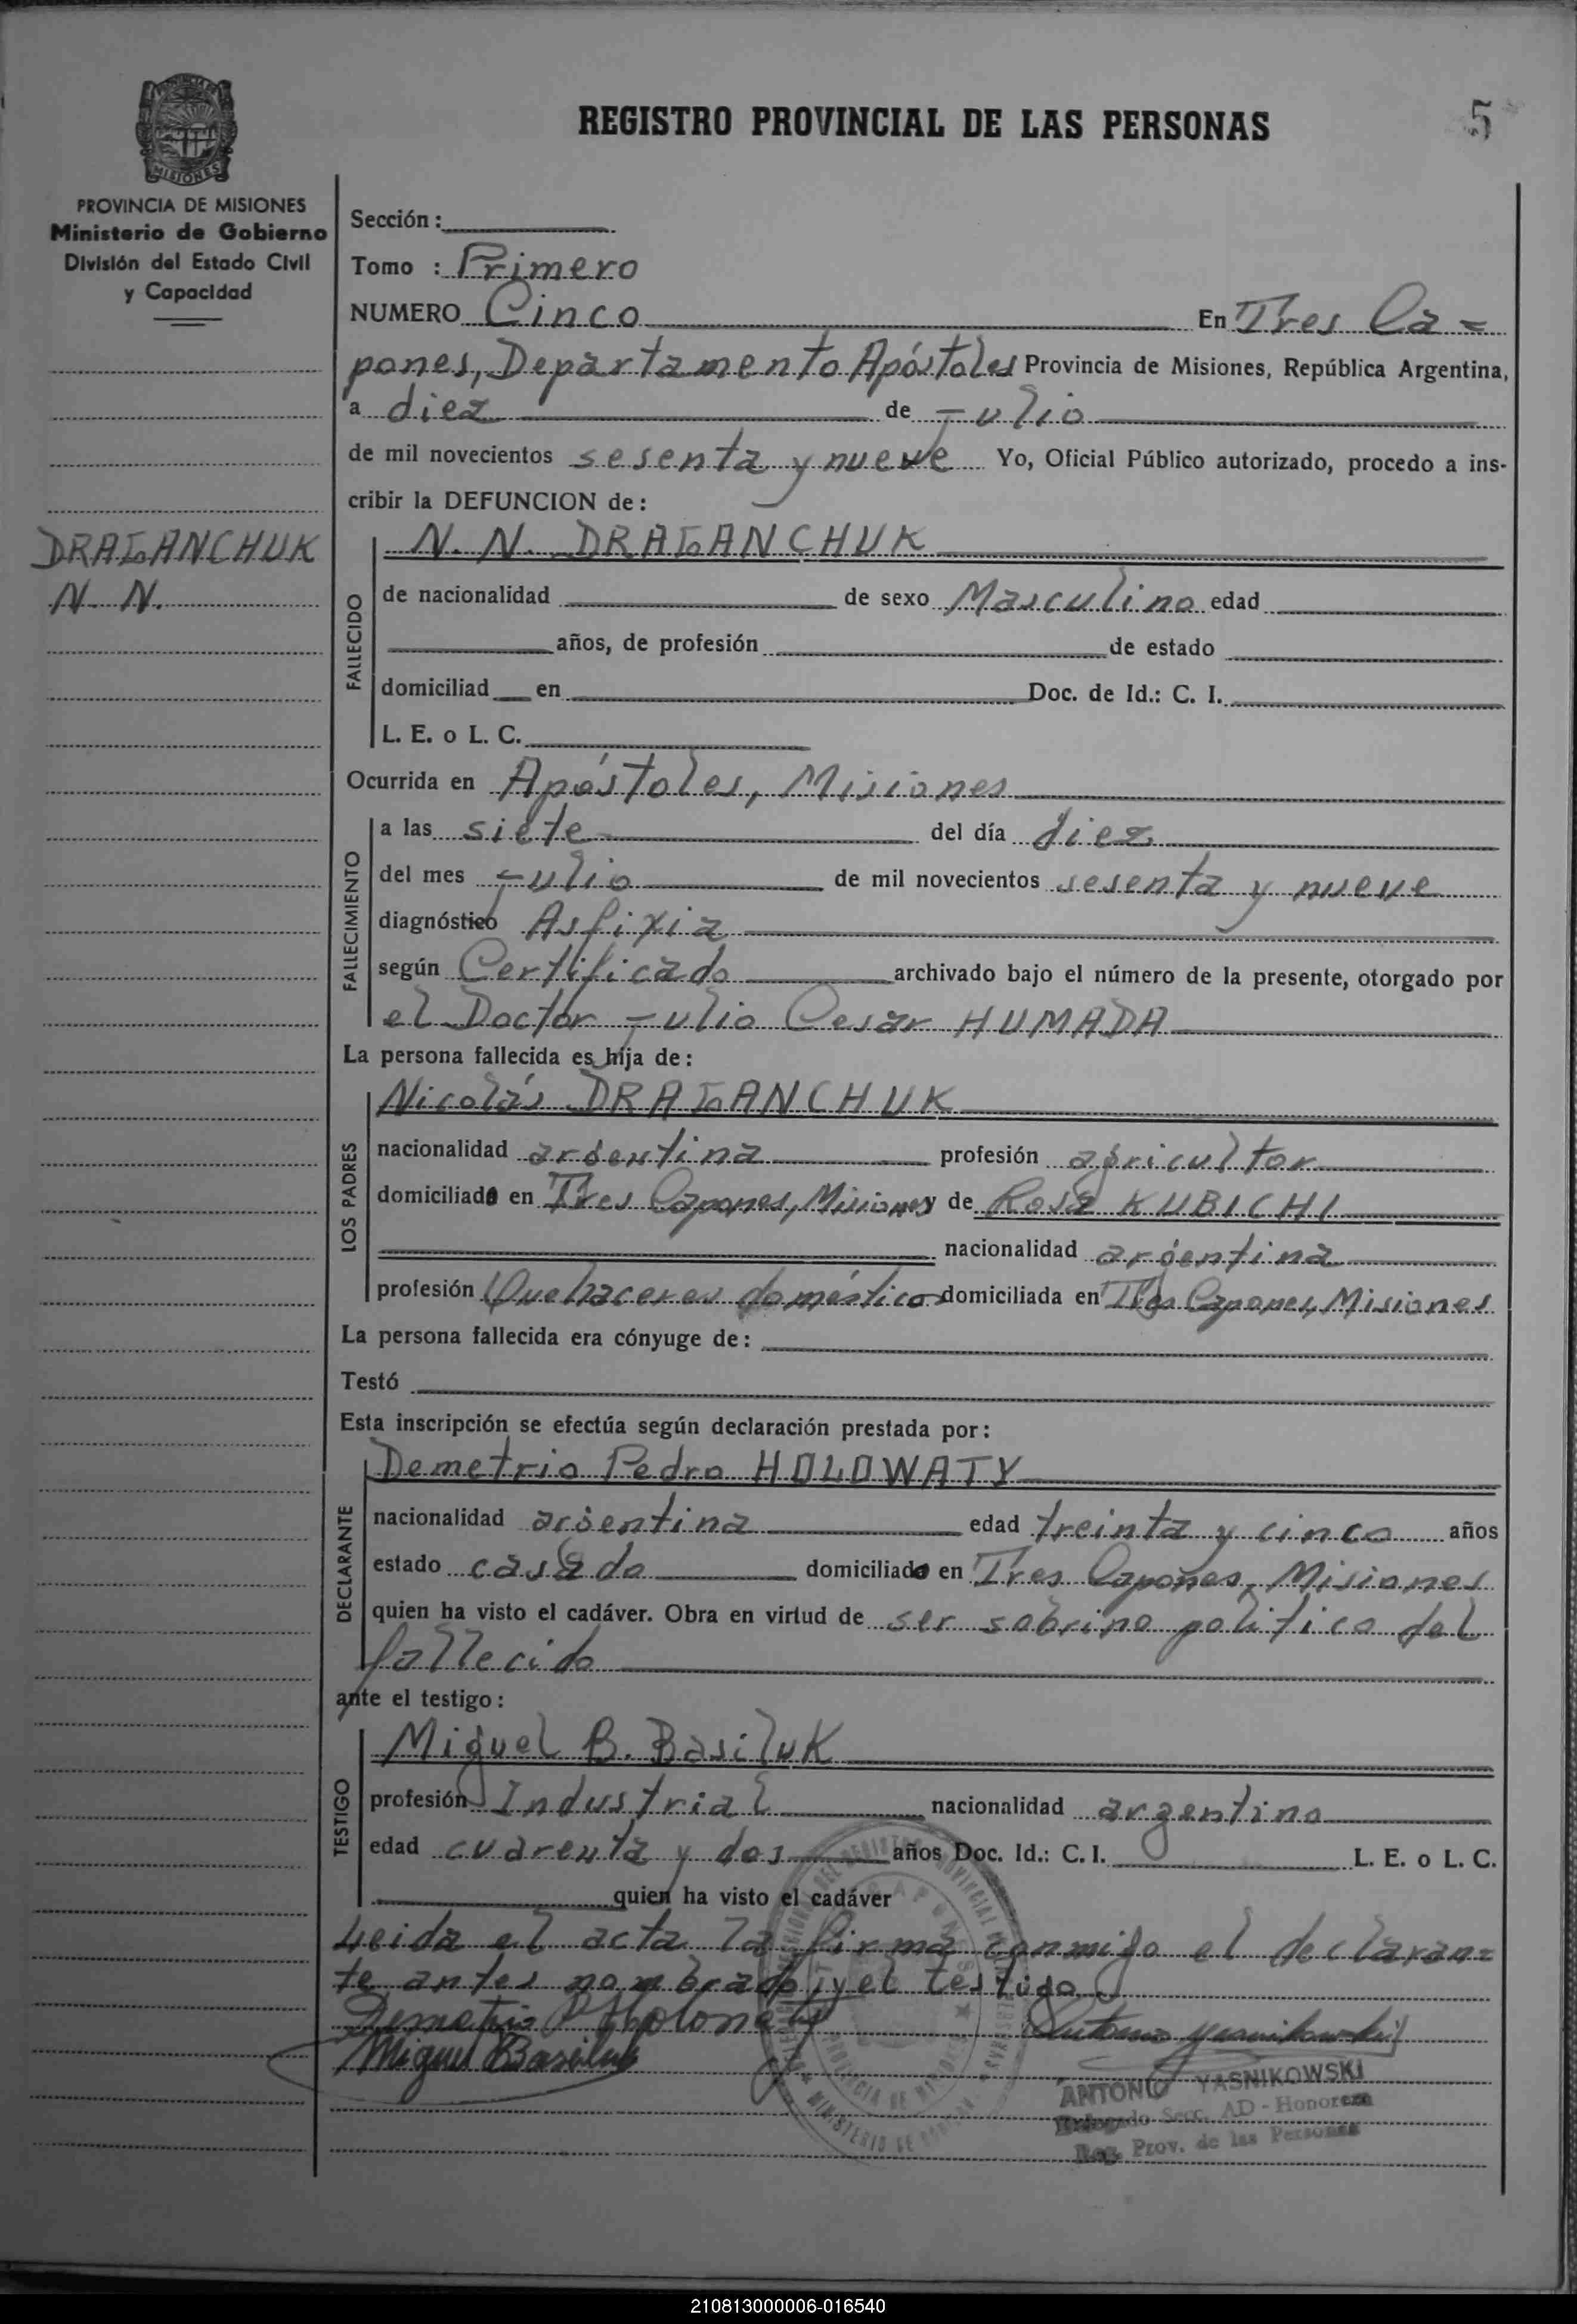 REGISTRO PROVINCIAL DE LAS PERSONAS
5
MISIONES
PROVINCIA DE MISIONES
Ministerio de Gobierno
División del Estado Civil
y Capacidad
DRAGANCHUK
N. N.
Sección:
Tomo : Primero
NUMERO Cinco En Tres Ca=
pones, Departamento Apóstoles Provincia de Misiones, República Argentina,
a diez de Julio
de mil novecientos sesenta y nueve Yo, Oficial Público autorizado, procedo a ins-
cribir la DEFUNCION de:
FALLECIDO
N. N. DRAGANCHUK
de nacionalidad de sexo Masculino edad
años, de profesión de estado
domiciliad en Doc. de Id.: C. I.
L. E. o L. C.
Ocurrida en Apóstoles, Misiones
FALLECIMIENTO
a las siete del día diez
del mes Julio de mil novecientos sesenta y nueve
diagnóstico Asfixia
según Certificado archivado bajo el número de la presente, otorgado por
el Doctor Julio Cesar HUMADA
La persona fallecida es hija de:
LOS PADRES
Nicolás DRAGANCHUK
nacionalidad argentina profesión agricultor
domiciliado en Tres Capones, Misiones y de Rosa KUBICHI
nacionalidad argentina
profesión Quehaceres domésticos domiciliada en Tres Capones, Misiones
La persona fallecida era cónyuge de:
Testó
Esta inscripción se efectúa según declaración prestada por:
DECLARANTE
Demetrio Pedro HOLOWATY
nacionalidad argentina edad treinta y cinco años
estado casado domiciliado en Tres Capones, Misiones
quien ha visto el cadáver. Obra en virtud de ser sobrino político del
fallecido
ante el testigo:
TESTIGO
Miguel B. Basiluk
profesión Industrial nacionalidad argentino
edad cuarenta y dos años Doc. Id.: C. I. L. E. o L. C.
quien ha visto el cadáver
Leida el acta la firma conmigo el declaran=
te antes nombrado y el testigo
Miguel Basiluk
ANTONIO YASNIKOWSKI
Delegado Secc. AD - Honorem
Reg. Prov. de las Personas
210813000006-016540